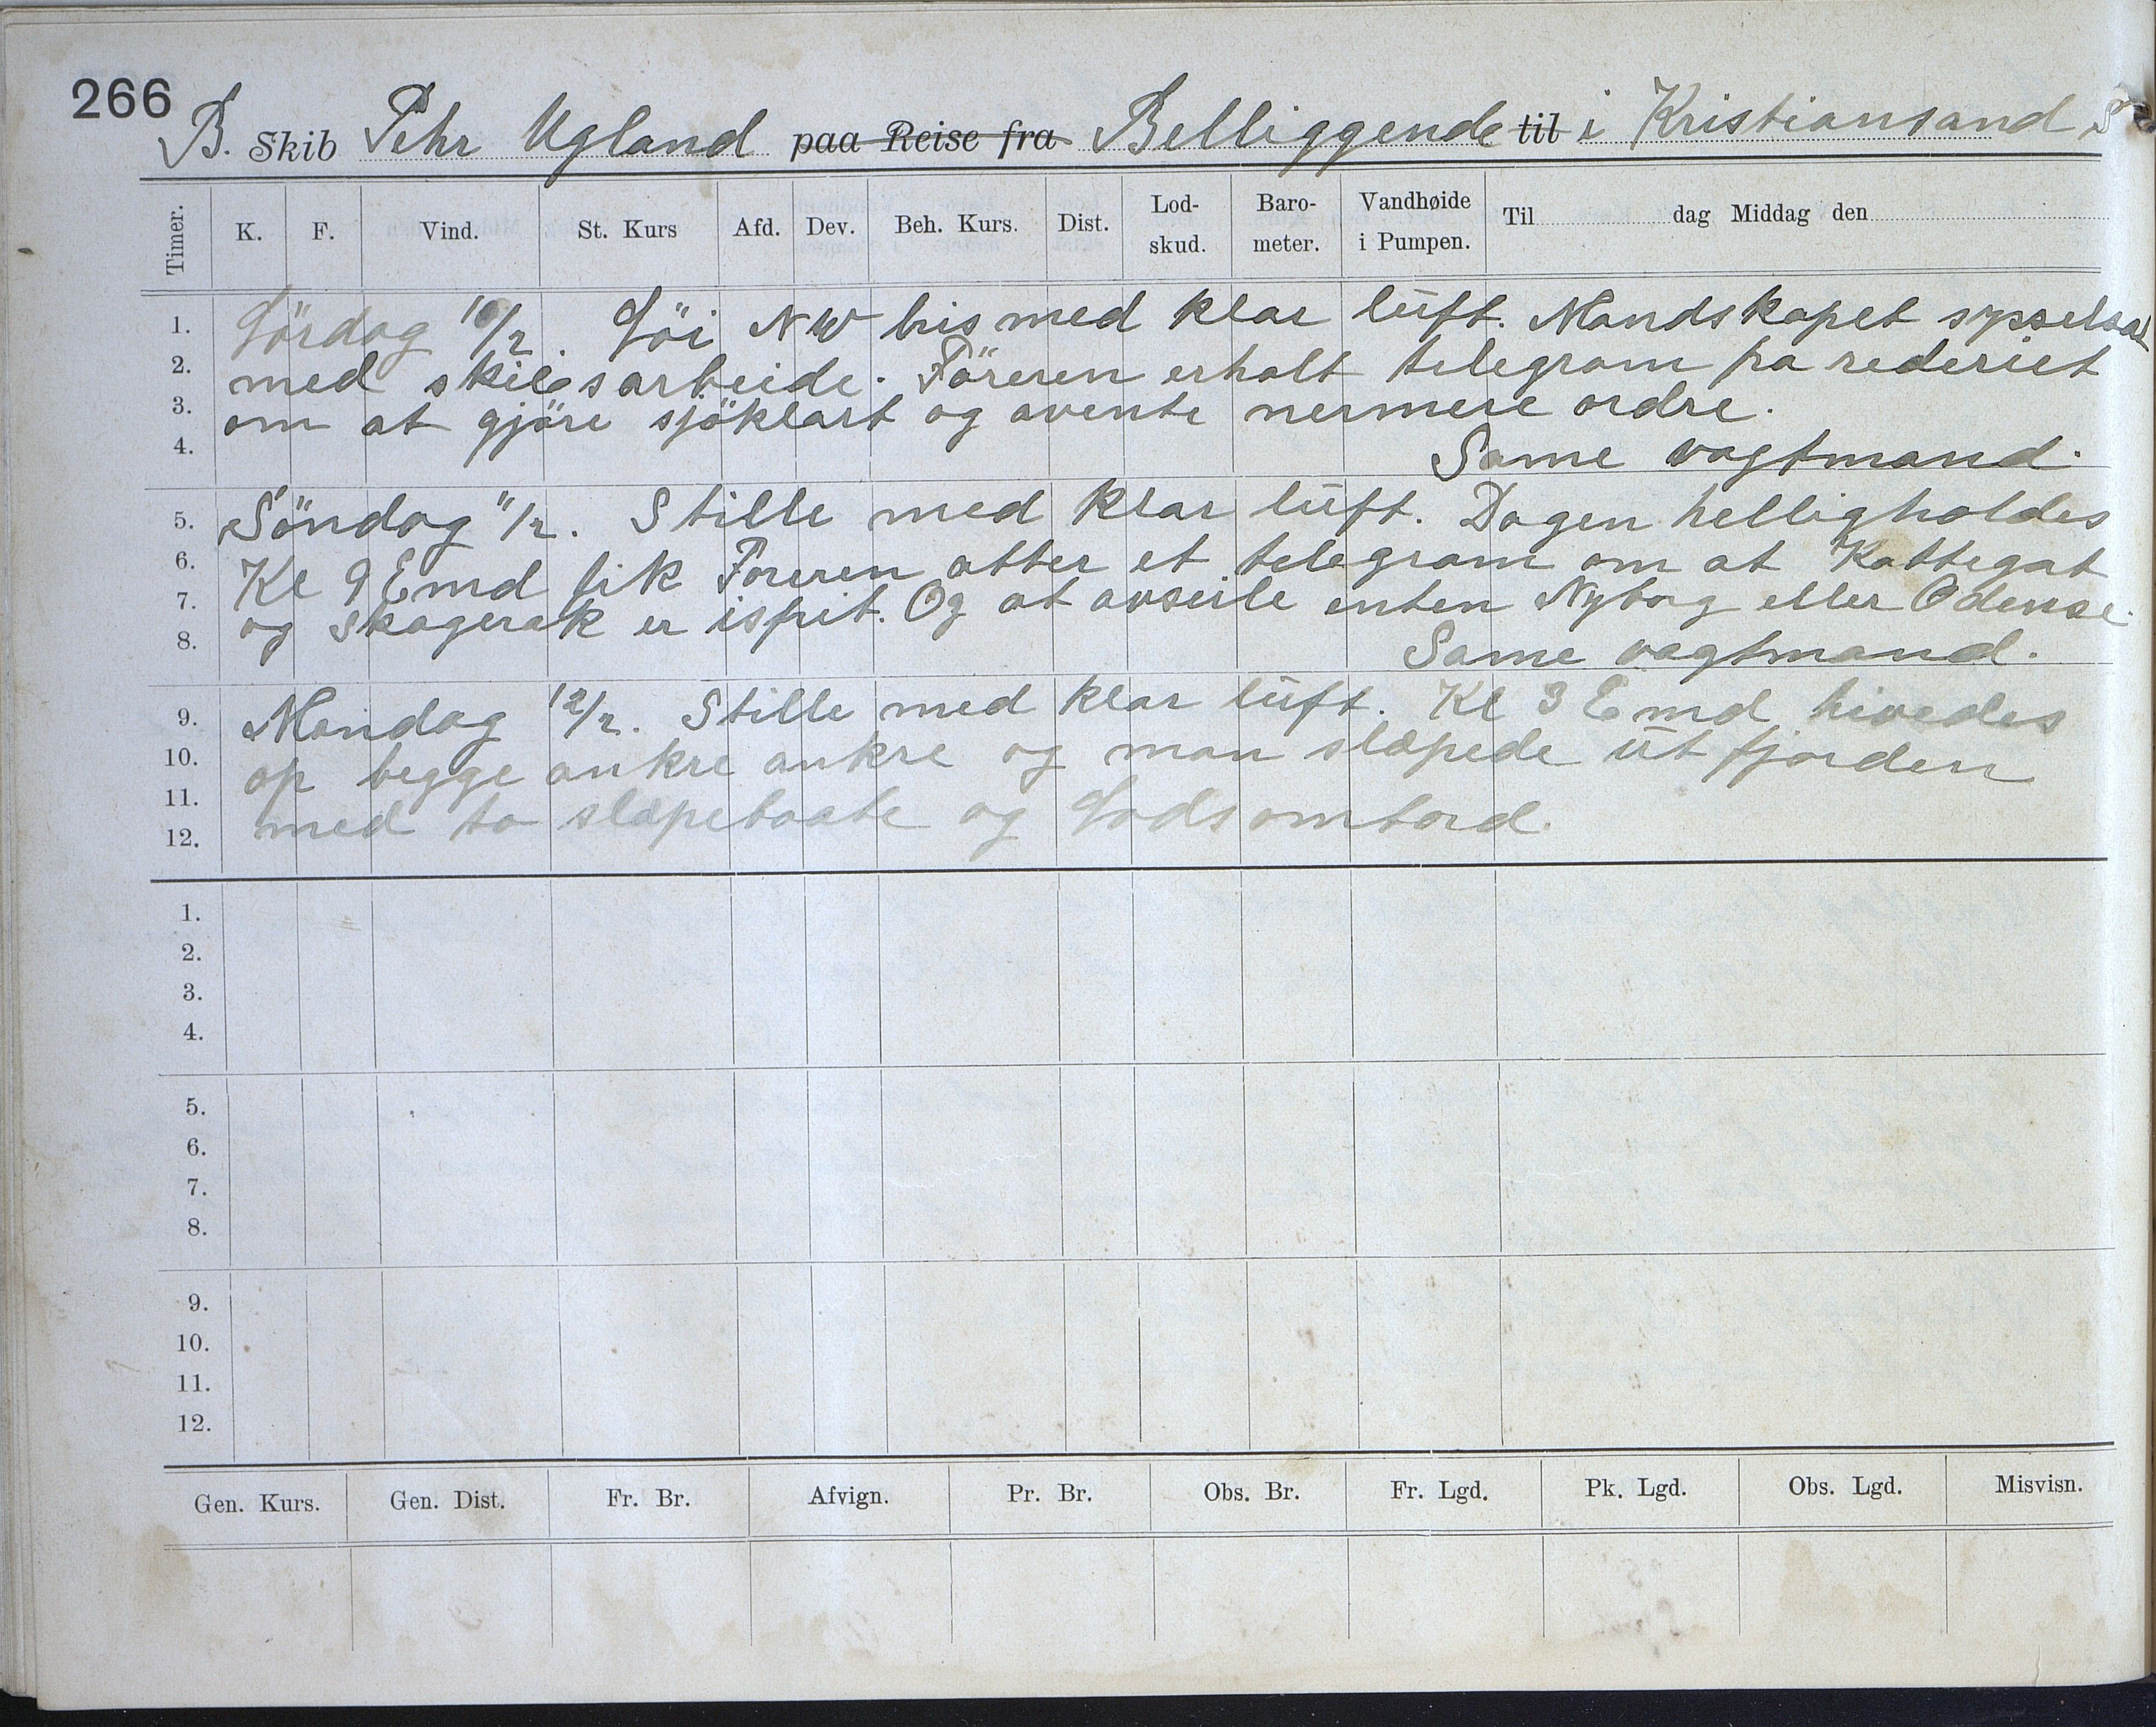 266
B. Skib Pehr Ugland paa Reise fra Belliggende til i Kristiansand S
Timer. K. F. Vind. St. Kurs Afd. Dev. Beh. Kurs. Dist. Lod-skud. Baro-meter. Vandhøide i Pumpen. Til dag Middag den
1. Lördag 10/2. Löi NW bris med klar luft. Mandskapet sysselsat
2. med skibsarbeide. Föreren erholt telegram fra rederiet
3. om at gjöre sjöklart og avente nermere ordre.
4. Same vagtmand.
5. Söndag 11/2. Stille med klar luft. Dagen helligholdes
6. Kl 9 Emd fik Foreren atter et telegram om at Kattegat
7. og Skagerak er isfrit. Og at avseile enten Nyborg eller Odense.
8. Same vagtmand.
9. Mandag 12/2. Stille med klar luft. Kl 3 Emd hivedes
10. op begge ankre ankre og man slæpede ut fjorden
11. med to slæpebaate og Lods ombord.
12.
1.
2.
3.
4.
5.
6.
7.
8.
9.
10.
11.
12.
Gen. Kurs. Gen. Dist. Fr. Br. Afvign. Pr. Br. Obs. Br. Fr. Lgd. Pk. Lgd. Obs. Lgd. Misvisn.